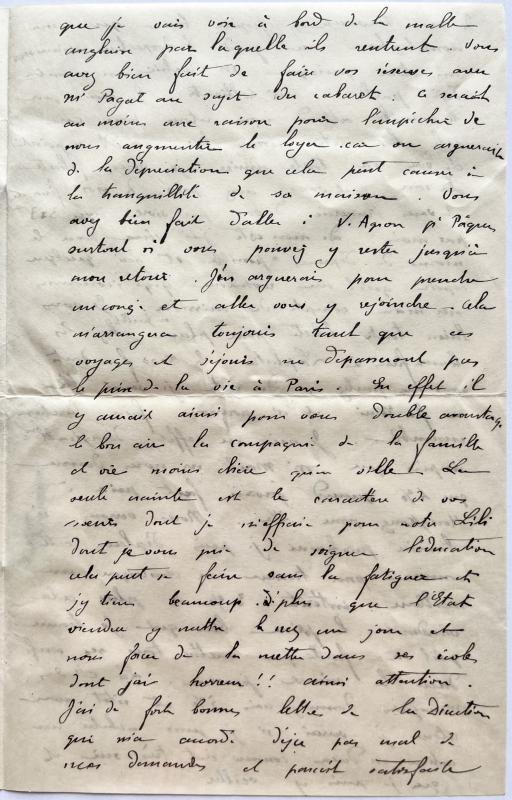 que je vais voir à bord de la malle
anglaise par laquelle ils rentrent. Vous
avez bien fait de faire vos réserves avec
Mr Pagat au sujet du cabaret. Ce serait
au moins une raison pour l'empêcher de
nous augmenter le loyer car on arguerait
de la dépréciation que cela peut causer à
la tranquillité de sa maison. Vous
avez bien fait d'aller à V. Agnon pr Pâques
surtout si vous pouvez y rester jusqu'à
mon retour. J'en arguerais pour prendre
un congé et aller vous y rejoindre. Cela
m'arrangera toujours tant que ces
voyages et séjours ne dépasseront pas
le prix de la vie à Paris. En effet il
y aurait ainsi pour vous double avantage
le bon air la compagnie de la famille
et vie moins chère qu'en ville. La
seule crainte est le caractère de vos
soeurs dont je m'effraie pour notre Lili
dont je vous prie de soigner l'éducation
cela peut se faire sans la fatiguer et
j'y tiens beaucoup. D'plus que l'Etat
viendra y mettre le nez un jour et
nous forcer de la mettre dans ses écoles
dont j'ai horreur!! ainsi attention.
J'ai de fort bonnes lettres de la Direction
qui m'a accordé déjà pas mal de
mes demandes et paraît satisfaite